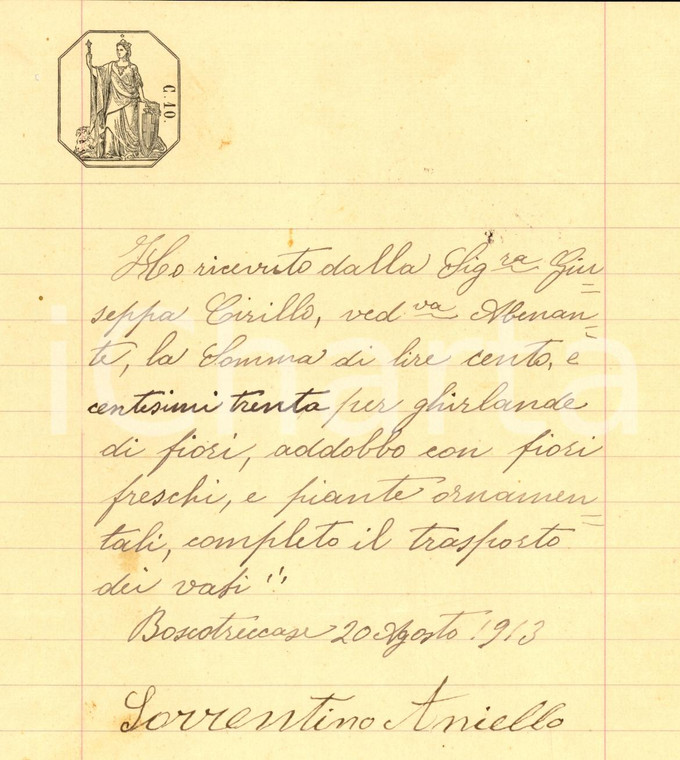 C. 10.
Ho ricevuto dalla Sig.ra Giu=
seppa Cirillo, ved.va Abenan=
te, la Somma di lire cento, e
centesimi trenta per ghirlande
di fiori, addobbo con fiori
freschi, e piante ornamen=
tali, completo il trasporto
dei vasi "
Boscotrecase 20 Agosto 1913
Sorrentino Aniello
iCharta